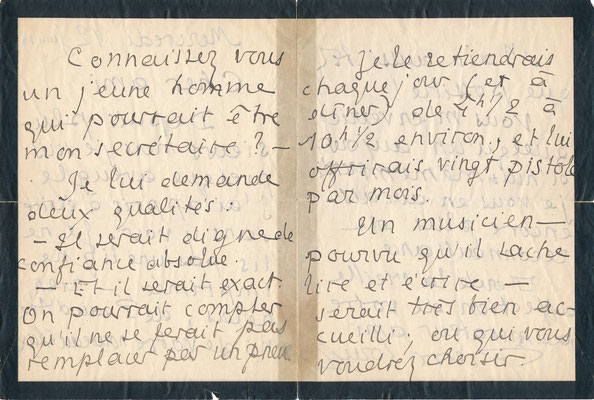 Connaissez vous
un jeune homme
qui pourrait être
mon secrétaire ? —
Je lui demande
deux qualités :
— Il serait digne de
confiance absolue.
— Et il serait exact.
On pourrait compter
qu'il ne se ferait pas
remplacer par un pneu.
Je le retiendrais
chaque jour (et à
dîner) de 4h 1/2 à
10h 1/2 environ, et lui
offrirais vingt pistoles
par mois.
Un musicien —
pourvu qu'il sache
lire et écrire —
serait très bien ac-
cueilli ; ou qui vous
voudrez choisir.